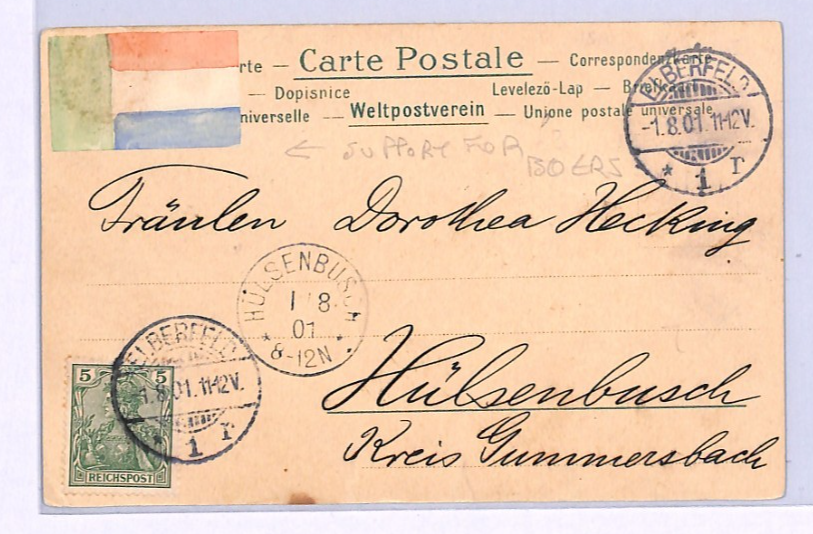 rte — Carte Postale — Correspondenzkarte
— Dopisnice Levelező-Lap —
niverselle — Weltpostverein — Unione postale universale
ELBERFELD
-1.8.01.11-12V.
* 1 r
← SUPPORT FOR BOERS
Fräulen Dorothea Hecking
HÜLSENBUSCH
1 8
01
* *
8-12N
ELBERFELD
1.8.01.11-12V.
* 1 r
Hülsenbusch
Kreis Gummersbach
5 5
REICHSPOST